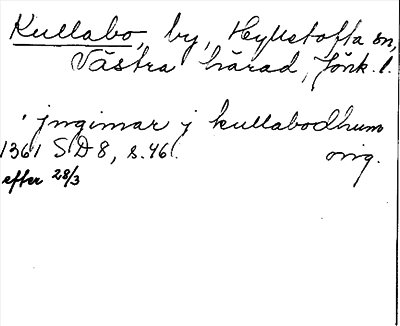 Kullabo, by, Hylletofta sn,
Västra härad, Jönk. l.
jngimar j kullabodhum
1361 SD 8, s. 46. orig.
efter 28/3